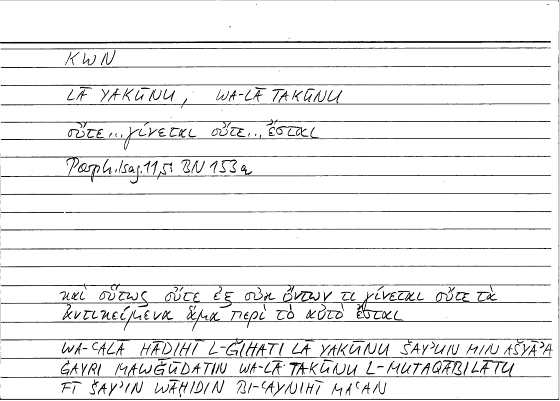 KWN
LĀ YAKŪNU, WA-LĀ TAKŪNU
οὔτε...γίνεται οὔτε...ἔσται
Porph. Isag. 11,5: BN 153a
καὶ οὕτως οὔτε ἐξ οὐκ ὄντων τι γίνεται οὔτε τὰ
ἀντικείμενα ἅμα περὶ τὸ αὐτὸ ἔσται
WA-ʿALĀ HĀḎIHĪ L-ǦIHATI LĀ YAKŪNU ŠAYʾUN MIN AŠYĀʾA
ĠAYRI MAWǦŪDATIN WA-LĀ TAKŪNU L-MUTAQĀBILĀTU
FĪ ŠAYʾIN WĀḤIDIN BI-ʿAYNIHĪ MAʿAN